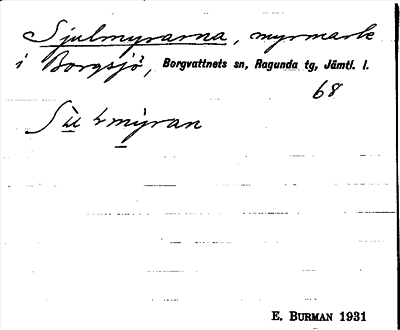 Sjulmyrarna, myrmark
i Borgsjö, Borgvattnets sn, Ragunda tg, Jämtl. l.
68
E. BURMAN 1931